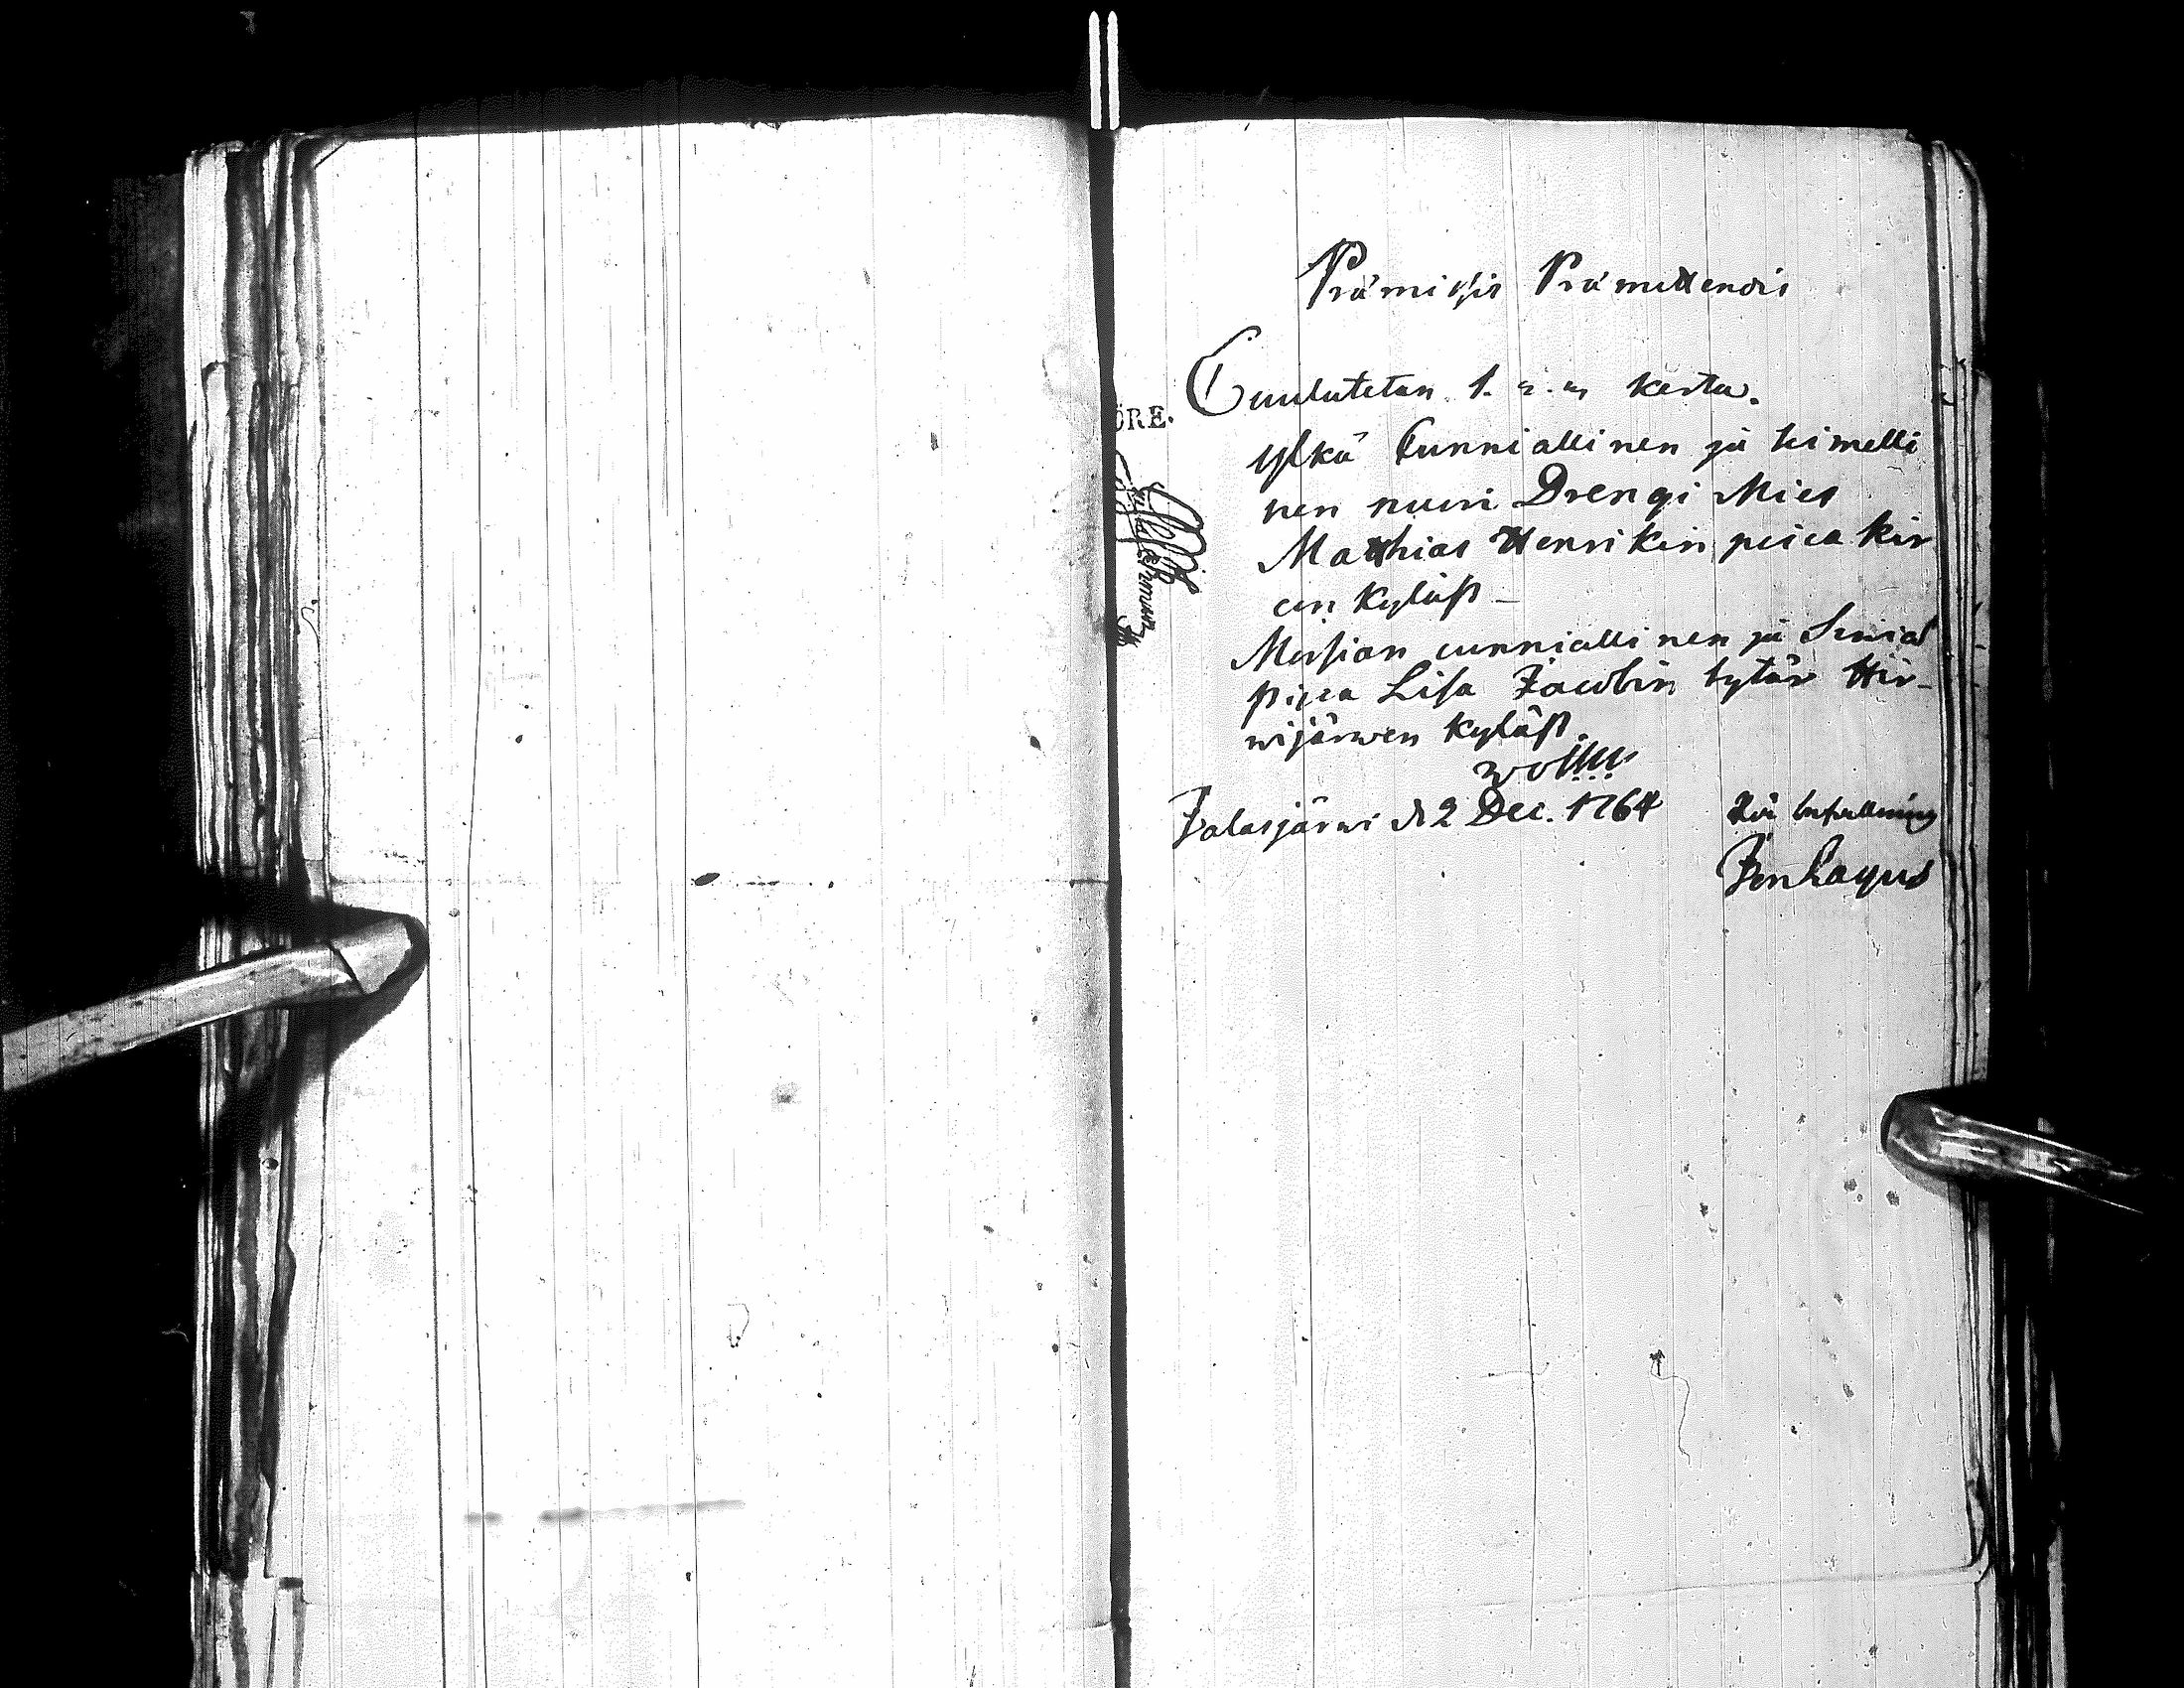 Præmissis Præmittendis
Cuulutetan 1. 2. 3 kerta.
Ylkä Cunniallinen ja teimelli
nen nuori Drengi Mies
Matthias Henrikin poica kir
cun kyläst _
Morsian cunniallinen ja Siwiä
pijca Lisa Jacobin tytär Hir-
wijärwen kyläst.
Jalasjärwi d 2 Dec. 1764
På befallning
ÖRE.